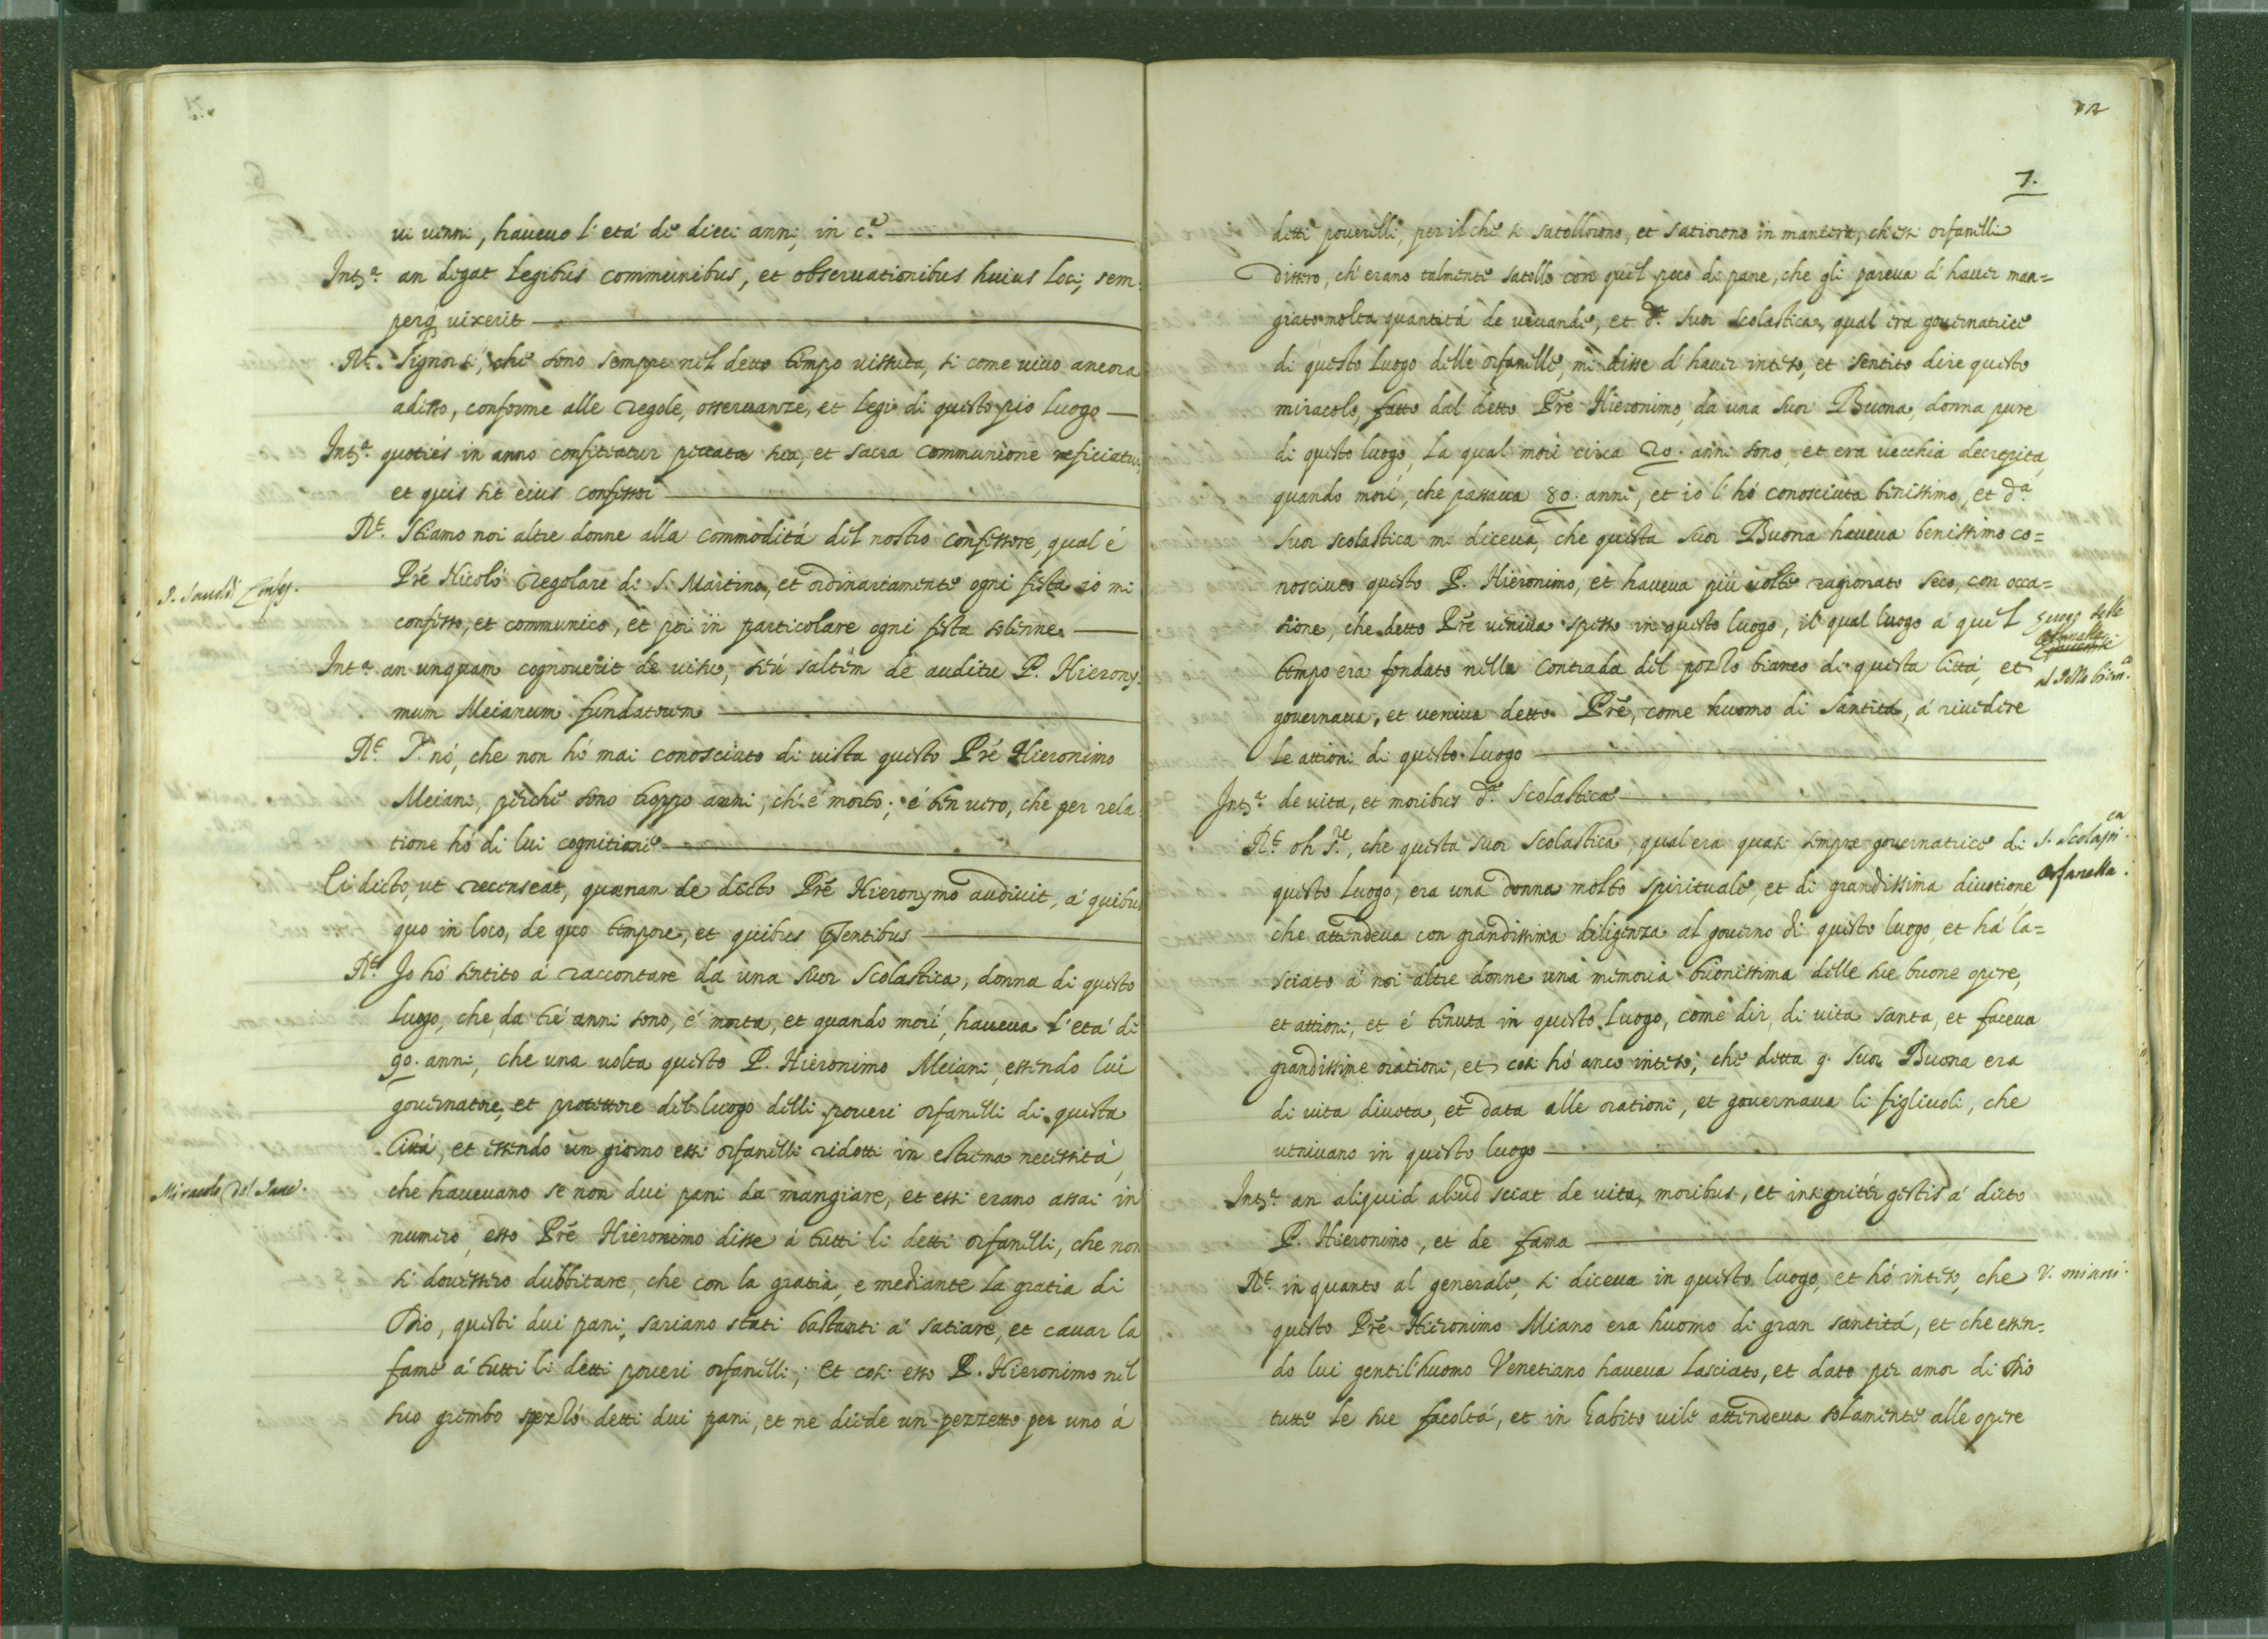 vi venni, havevo l'etá de dieci anni, in c.ᵃ
Intᵃ. an degat legibus communibus, et observationibus huius loci, sem-
perq̃ vixerit
Rᵗ. Signor sí, che sono sempre nel detto tempo vissuta, si come vivo ancora
adesso, conforme alle regole, osservanze, et legi di questo pio luogo
Intᵃ. quoties in anno confiteatur peccata sua, et sacra communione reficiatur,
et quis sit eius confessor
Rᵗ. Stiamo noi altre donne alla commoditá del nostro confessore, qual é
Pré Nicoló regolare di S. Martino, et ordinariamente ogni festa io mi
confesso, et communico, et poi in particolare ogni festa solenne
Intᵃ an unquam cognoverit de visu, seú saltém de auditu P. Hierony-
mum Meianum fundatorem
Rᵗ S. nó, che non hó mai conosciuto di vista questo Pré Hieronimo
Meiani, perché sono troppo anni, ch'é morto; é ben vero, che per rela-
tione hó di lui cognitione
Ei dicto, ut recenseat, quænam de dicto Pré Hieronymo audivit, á quibus
quo in loco, de quo tempore, et quibus p̃sentibus
Rᵗ. Io hó sentito á raccontare da una Suor Scolastica, donna di questo
luogo, che da tré anni sono, é morta, et quando morí, haveva l'etá di
90. anni, che una volta questo P. Hieronimo Meiani, essendo lui
governatore, et protettore del luogo delli poveri orfanelli di questa
Cittá, et essendo un giorno essi orfanelli ridotti in estrema necessitá,
che havevano se non dui pani da mangiare, et essi erano assai in
numero, esso Pré Hieronimo disse á tutti li detti orfanelli, che non
si dovessero dubbitare, che con la gratia, e mediante la gratia di
Dio, questi dui pani, sariano stati bastanti á satiare, et cavar la
fame á tutti li detti poveri orfanelli; et cosi esso P. Hieronimo nel
suo grembo spezzó detti dui pani, et ne diede un pezzetto per uno á
Confess.
Miracolo del
7.
detti poverelli, per il che si satollorono, et satiorono in maniera, ch'essi orfanelli
dissero, ch'erano talmente satolli con quel poco di pane, che gli pareva d'haver man=
giato molta quantitá de vivande, et d.ᵃ Suor Scolastica, qual era governatrice
di questo luogo delle orfanelle, mi disse d'haver inteso, et sentito dire questo
miracolo, fatto dal detto Pré Hieronimo, da una Suor Buona, donna pure
di questo luogo, la qual morí circa 20. anni sono, et era vecchia decrepita,
quando morí, che passava 80. anni, et io l'hó conosciuta benissimo, et d.ᵃ
Suor Scolastica mi diceva, che questa Suor Buona haveva benissimo co=
nosciuto questo P. Hieronimo, et haveva piú volte ragionato seco, con occa=
sione, che detto Pré veniva spesso in questo luogo, il qual luogo á quel
tempo era fondato nella contrada del pozzo bianco di questa Cittá, et
governava, et veniva detto Pré, come huomo di santitá, á rivedere
le attioni di questo luogo
Intᵃ. de vita, et moribus d.ᵉ Scolasticæ
Rᵗ. oh S.ᵉ, che questa Suor Scolastica, qual era quasi sempre governatrice di
questo luogo, era una donna molto spirituale, et di grandissima divotione
che attendeva con grandissima diligenza al governo di questo luogo, et há la=
sciato á noi altre donne una memoria buonissima delle sue buone opere,
et attioni, et é tenuta in questo luogo, come dir, di vita santa, et faceva
grandissime orationi, et cosi hó anco inteso, che detta q. Suor Buona era
di vita divota, et data alle orationi, et governava li figliuoli, che
venivano in questo luogo
Intᵃ. an aliquid aliud sciat de vita, moribus, et insignitér gestis á dicto
P. Hieronimo, et de fama
Rᵗ. in quanto al generale, si diceva in questo luogo, et hó inteso, che
questo Pré Hieronimo Miano era huomo di gran santitá, et che essen=
do lui gentil'huomo Venetiano haveva lasciato, et dato per amor di Dio
tutte le sue facoltá, et in habito vile attendeva solamente alle opere
Luogo delle
Orfanelle
al Pozzo bianᶜᵒ.
S. Scolastᶜᵃ.
Orfanella.
V. miani.